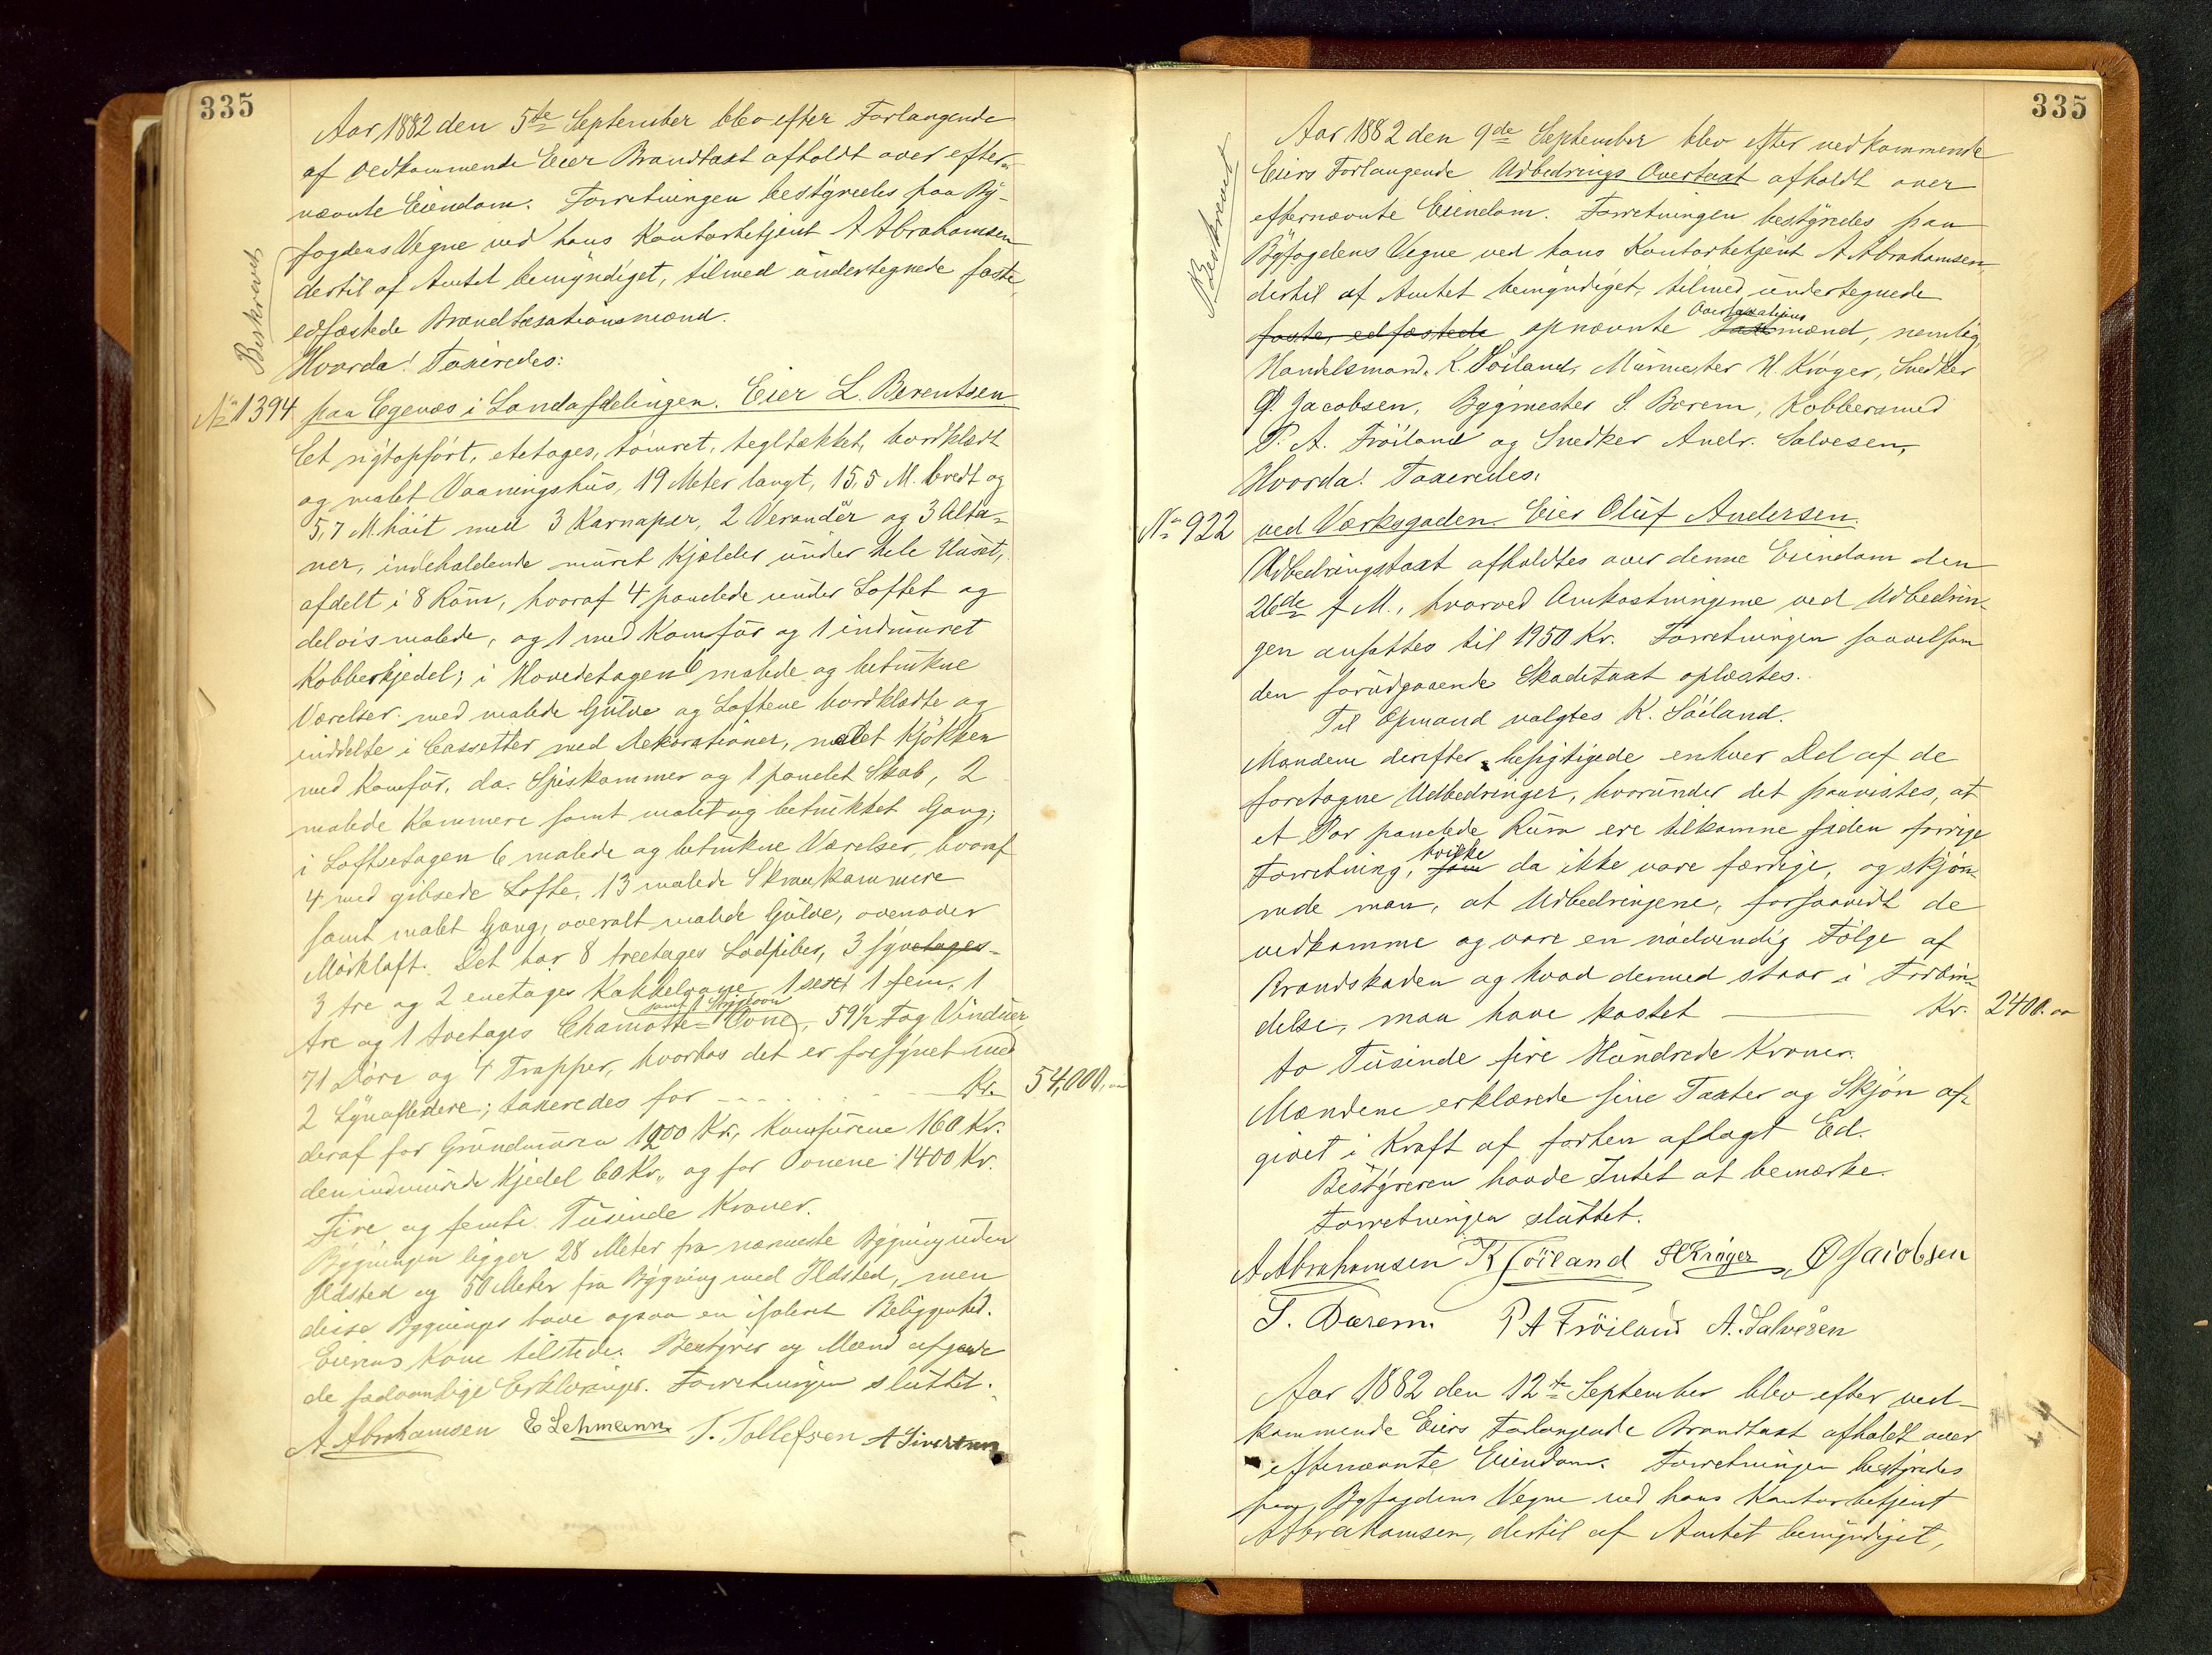 335
Aar 1882 den 5te September blev efter Forlangende
af vedkommende Eier Brandtaxt afholdt over efter-
nævnte Eiendom. Forretningen bestyredes paa By-
fogdens Vegne ved hans Kontorbetjent A Abrahamsen
dertil af Amtet bemyndiget, tilmed undertegnede faste,
edfæstede Brandtaxationsmænd.
Beskrevet
Hvorda! Taxeredes:
No 1394 paa Egenæs i Landafdelingen. Eier L. Berentsen.
Et nÿtopført, etetages, tømret, tegltækket, bordklædt
og malet Vaaningshus, 19 Meter langt, 15,5 M. bredt og
5,7 M. høit med 3 Karnaper, 2 Verandaer og 3 Alta-
ner, indeholdende muret Kjælder under hele Huset,
afdelt i 8 Rum, hvoraf 4 panelede under Loftet og
delvis malede, og 1 med Komfur og 1 indmuret
Kobberkjedel; i Hovedetagen 6 malede og betrukne
Værelser med malede Gulve og Loftene bordklædte og
inddelte i Cassetter med Dekorationer, malet Kjøkken
med Komfur, do. Spiskammer og 1 panelet Skab, 2
malede Kammere samt malet og betrukket Gang;
i Loftsetagen 6 malede og betrukne Værelser, hvoraf
4 med gibsede Lofte, 13 malede Skraakammere
samt malet Gang, overalt malede Gulve, ovenover
Mørkloft. Det har 8 treetages Lødpiber, 3 syvetages-
3 tre og 2 enetages Kakkelovne, 1 sexet 1 fem, 1
samt 1 Strygeovn
tre og 1 toetages Chamotte-Ovne, 59½ Fag Vinduer,
71 Døre og 4 Trapper, hvorhos det er forsynet med
2 Lynafledere; taxeredes for - - - - - Kr. 54,000.00
deraf for Grundmuren 1200 Kr., Komfurene 160 Kr.
den indmurede Kjedel 60 Kr., og for Ovnene 1400 Kr.
Fire og femti Tusinde Kroner.
Bygningen ligger 28 Meter fra nærmeste Bygning uden
Ildsted og 50 Meter fra Bygning med Ildsted, men
disse Bygninger have ogsaa en isoleret Beliggenhed.
Eierens Kone tilstede. Bestyrer og Mænd afgave
de sædvanlige Erklæringer. Forretningen sluttet.
A Abrahamsen E Lehmann T. Tollefsen A Sivertsen
335
Aar 1882 den 9de September blev efter vedkommende
Eiers Forlangende Udbedrings Overtaxt afholdt over
efternævnte Eiendom. Forretningen bestyredes paa
Byfogdens Vegne ved hans Kontorbetjent A Abrahamsen,
dertil af Amtet bemyndiget, tilmed undertegnede
Beskrevet
Overtaxations
faste, edfæstede opnævnte Taxtmænd, nemlig
Handelsmand K. Søiland, Murmester H. Krøger, Snedker
O. Jacobsen, Bygmester S. Børem, Kobbersmed
P. A. Frøiland og Snedker Andr. Salvesen,
Hvorda! Taxeredes:
No 922 ved Værksgaden. Eier Oluf Andersen.
Udbedringstaxt afholdtes over denne Eiendom den
26de f. M., hvorved Omkostningerne ved Udbedrin-
gen ansattes til 1950 Kr. Forretningen saavelsom
den forudgaaende Skadetaxt oplæstes.
Til Opmand valgtes K. Søiland.
Mændene derefter besigtigede enhver Del af de
foretagne Udbedringer, hvorunder det paavistes, at
et Par panelede Rum ere tilkomne siden forrige
hvilke
Forretning, som da ikke vare færdige, og skjøn-
nede man, at Udbedringene, forsaavidt de
vedkomme og vare en nødvendig Følge af
Brandskaden og hvad dermed staar i Forbin-
delse, maa have kostet Kr. 2400.00
to Tusinde fire Hundrede Kroner.
Mændene erklærede sine Taxter og Skjøn af-
givet i Kraft af forhen aflagt Ed.
Bestyreren havde Intet at bemærke.
Forretningen sluttet.
A Abrahamsen K Søiland H Krøger O Jacobsen
S. Børem. P A Frøiland A. Salvesen
Aar 1882 den 12te September blev efter ved-
kommende Eiers Forlangende Brandtaxt afholdt over
efternævnte Eiendom. Forretningen bestyredes
paa Byfogdens Vegne ved hans Kontorbetjent
A Abrahamsen, dertil af Amtet bemyndiget,